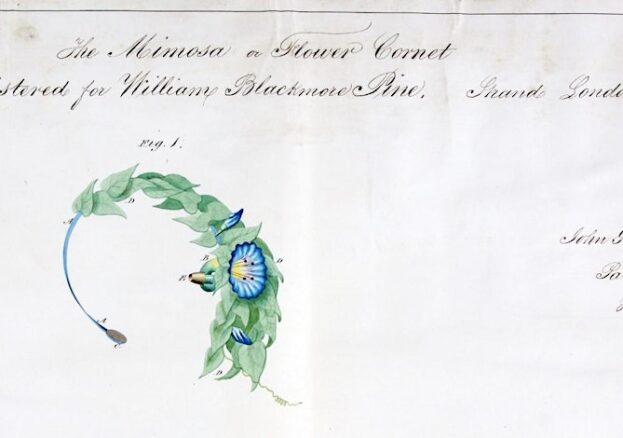 The Mimosa or Flower Cornet
stered for William Blackmore Pine. Strand Londo
Fig. 1.
A
D
B
E
D
A
C
D
John
Pa